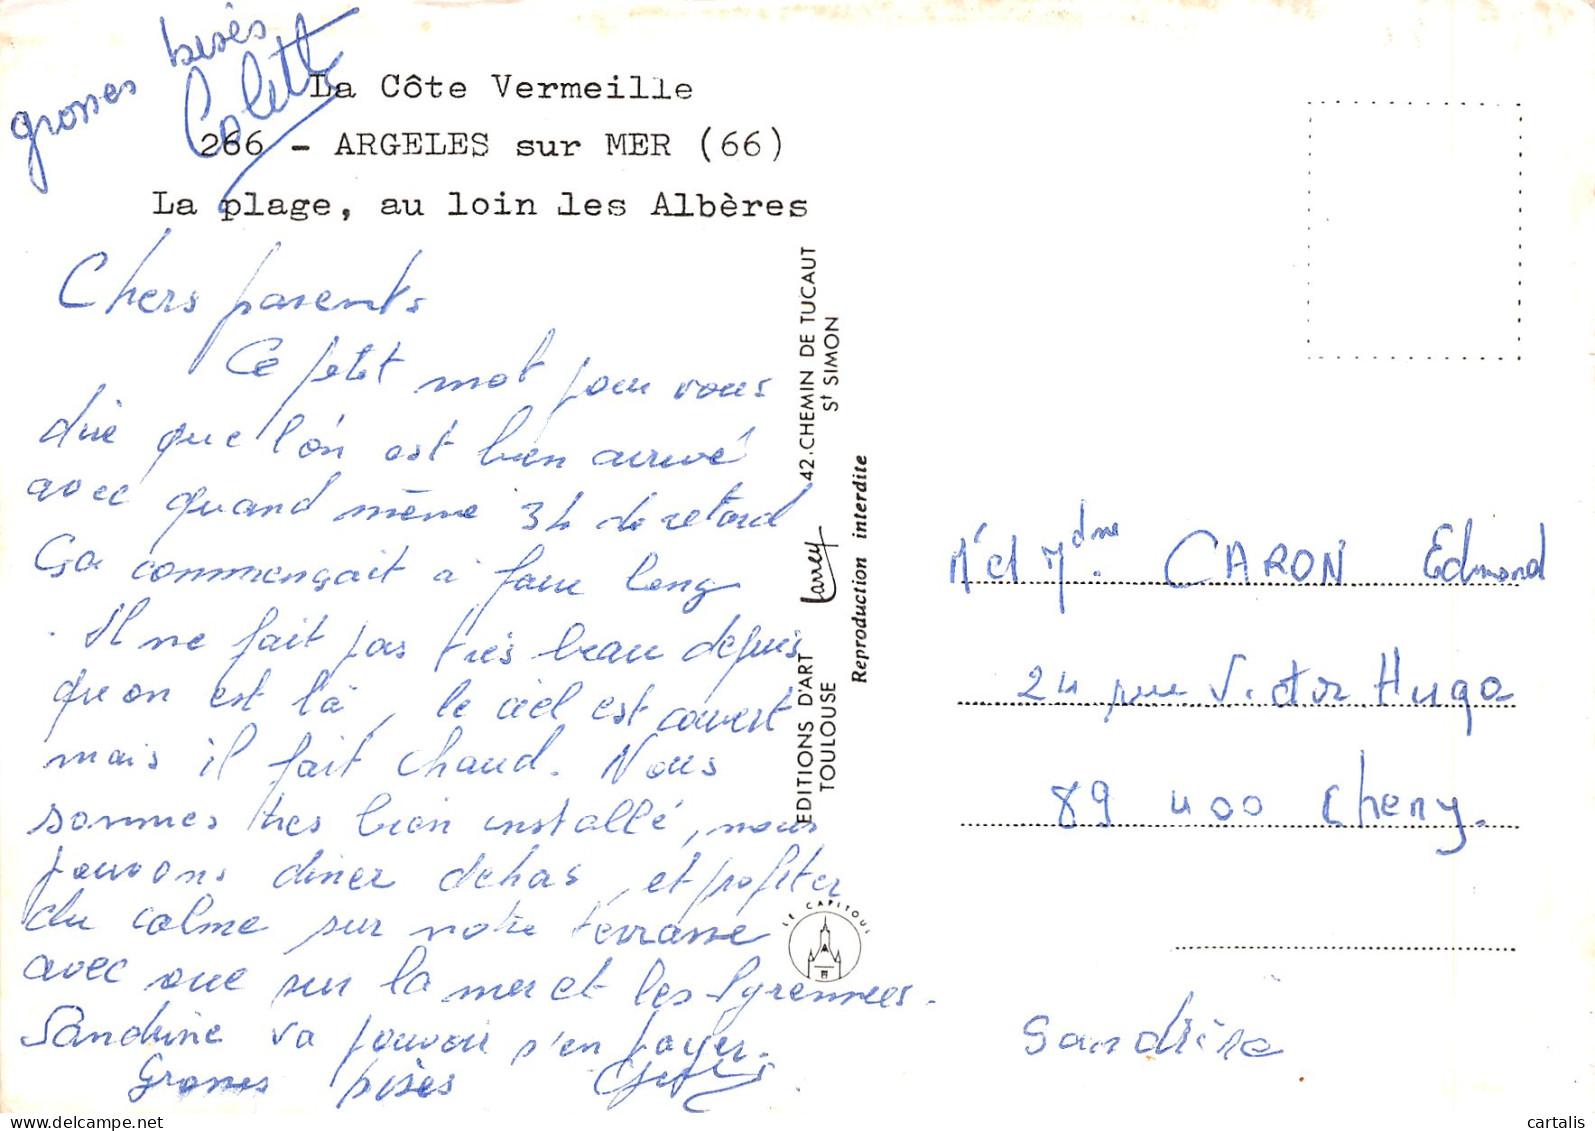 grosses bises
Colette
La Côte Vermeille
266 - ARGELES sur MER (66)
La plage, au loin les Albères
Chers parents
Ce petit mot pour vous
dire que l'on est bien arrivé
avec quand même 3h de retard
Ça commençait à faire long
. Il ne fait pas très beau depuis
qu'on est là, le ciel est couvert
mais il fait chaud. Nous
sommes très bien installé, nous
pouvons diner dehos, et profiter
du calme sur notre terrasse
avec vue sur la mer et les Pyrennees.
Sandrine va pouvoir s'en payer.
Grosses bises
EDITIONS D'ART Larrey 42.CHEMIN DE TUCAUT
TOULOUSE St SIMON
Reproduction interdite
LE CAPITOUL
Mr et Mdme. CARON Edmond
24 rue Victor Hugo
89 400 Cheny.
Sandrine
delcampe.net
cartalis